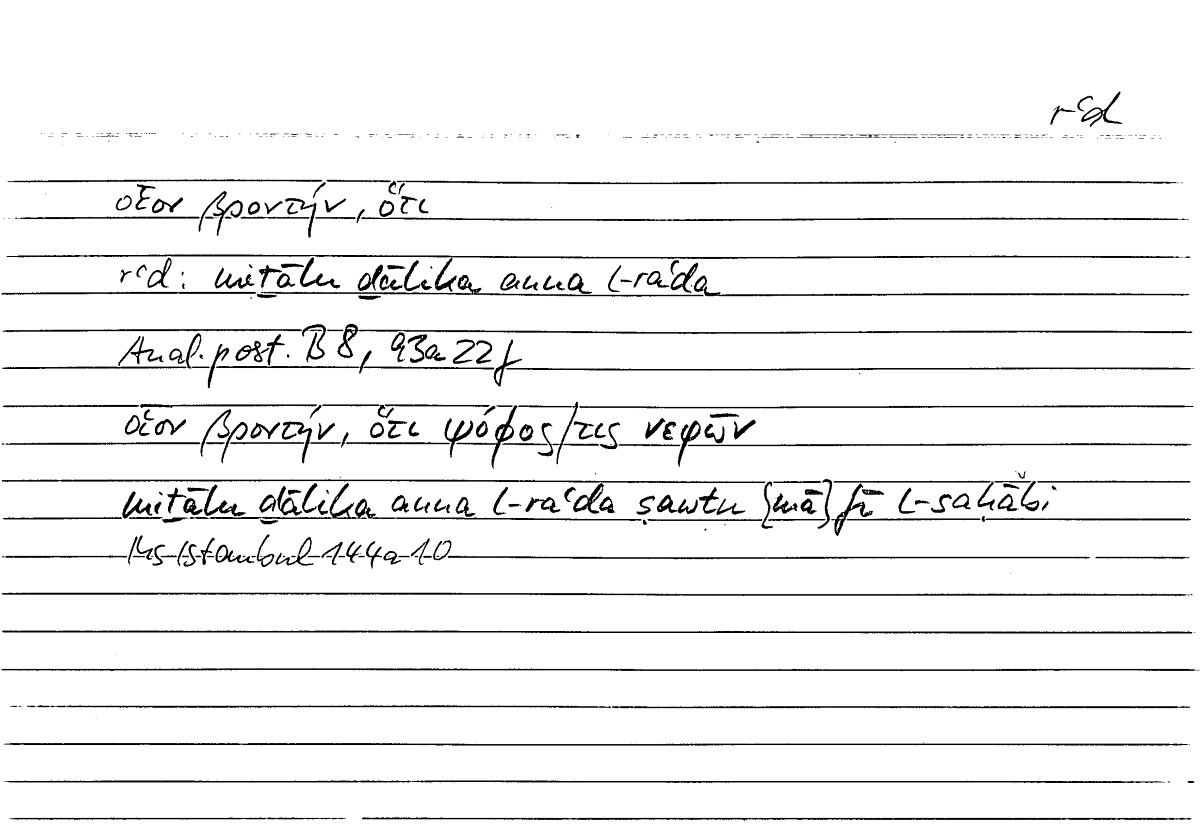 rʿd
οἷον βροντήν, ὅτι
rʿd: miṯālu ḏālika anna l-raʿda
Anal. post. B 8, 93a22f
οἷον βροντήν, ὅτι ψόφος/τις νεφῶν
miṯālu ḏālika anna l-raʿda ṣawtu {mā} fī l-saḥābi
Ms Istanbul 144a10